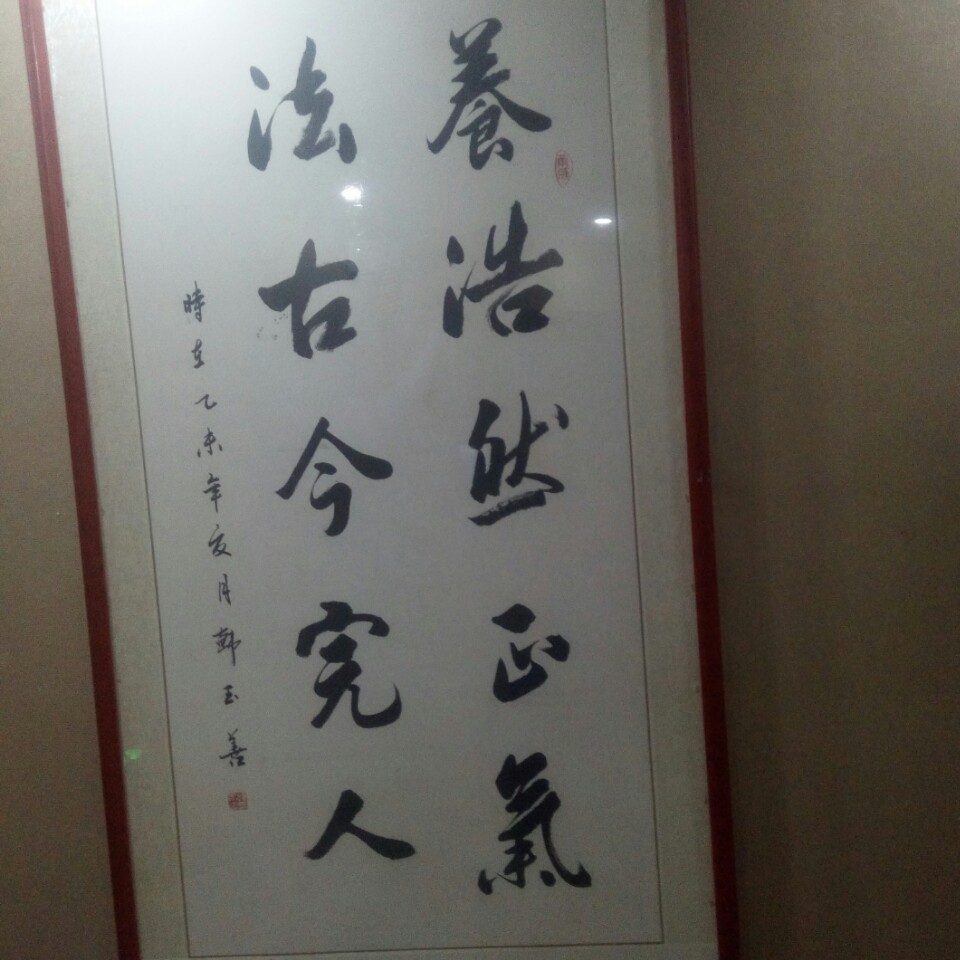 養浩然正氣
法古今完人
時在乙未年夏月韩玉善